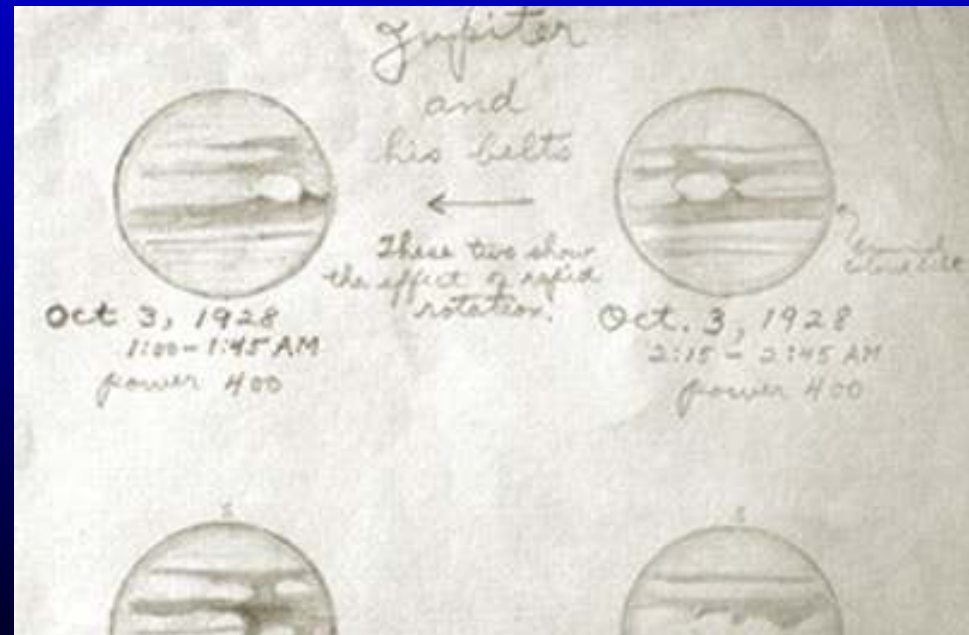 Jupiter
and
his belts
These two show
the effect of rapid
rotation.
Oct 3, 1928
1:00-1:45 AM
power 400
Oct. 3, 1928
2:15 - 2:45 AM
power 400
S
S